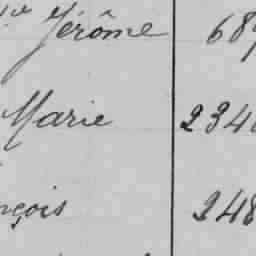 Jérôme 687
Marie 234
nçois 248